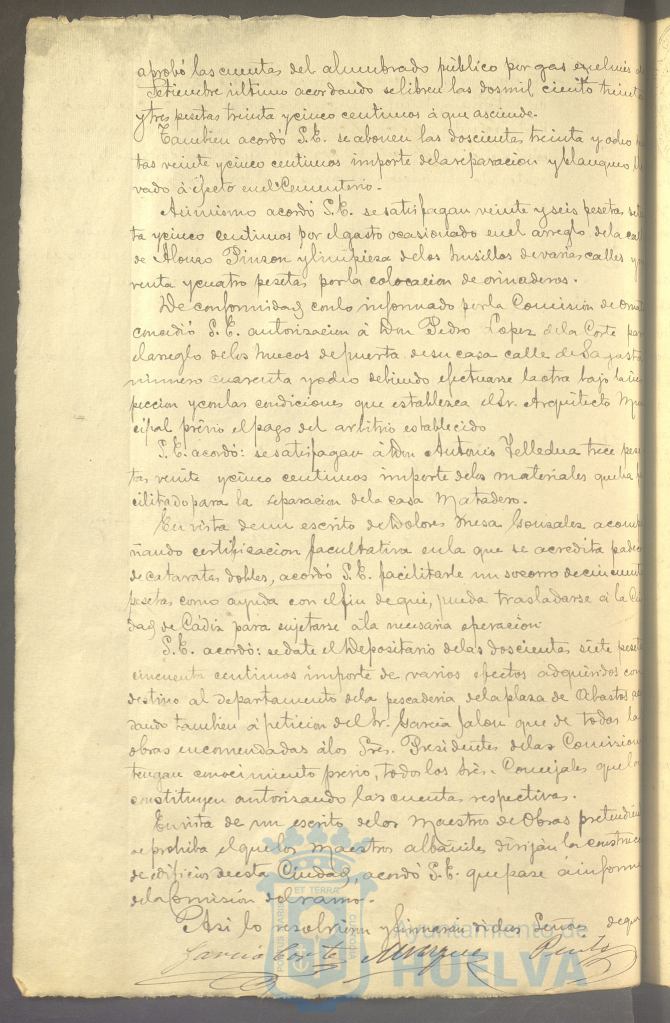 aprobó las cuentas del alumbrado público por gas en el mes d
Setiembre último acordando se libren las dos mil ciento treinta
y tres pesetas treinta y cinco centimos á que asciende.
Tambien acordó S.E. se abonen las doscientas treinta y ocho
tas veinte y cinco centimos importe de la reparacion y blanqueo
vado á efecto en el Cementerio.
Asimismo acordó S.E. se satisfagan veinte y seis pesetas
ta y cinco centimos por el gasto ocasionado en el arreglo de la ca
de Alonso Pinzon y limpieza de los husillos de varias calles y
renta y cuatro pesetas por la colocacion de orinaderos.
De conformidad con lo informado por la Comision de Orna
concedió S.E. autorizacion á Don Pedro Lopez de la Corte pa
el arreglo de los huecos de puerta de su casa calle de Sagasta
número cuarenta y ocho debiendo efectuarse la obra bajo la ins
peccion y con las condiciones que establezca el Sr. Arquitecto Mu
cipal prévio el pago del arbitrio establecido
S.E. acordó: se satisfagan á Don Antonio Telledua trece pese
tas veinte y cinco centimos importe de los materiales que ha f
cilitado para la reparacion de la casa Matadero.
En vista de un escrito de Dolores Mesa Gonzalez acomp
ñando certificacion facultativa en la que se acredita padec
de cataratas dobles, acordó S.E. facilitarle un socorro de cincuenta
pesetas como ayuda con el fin de que, pueda trasladarse á la Ciu
dad de Cádiz para sujetarse á la necesaria operacion.
S.E. acordó: se date el Depositario de las doscientas siete peset
cincuenta centimos importe de varios efectos adquiridos con
destino al departamento de la pescaderia de la plaza de Abastos
dando tambien á peticion del Sr. García Jalon que de todas las
obras encomendadas á los Sres. Presidentes de las Comision
tengan conocimiento prévio, todos los Sres. Concejales que las
constituyen autorizando las cuentas respectivas.
En vista de un escrito de los Maestros de Obras pretendien
se prohiba el que los Maestros albañiles dirijan la construcc
de edificios de esta Ciudad, acordó S.E. que pase á inform
de la Comision del ramo.
Asi lo resolvieron y firmarán dichos Señores de que
García Cortés Marquez Pinto
PORTUS MARIS ET TERRAE CUSTODIA
Ayuntamiento de
HUELVA